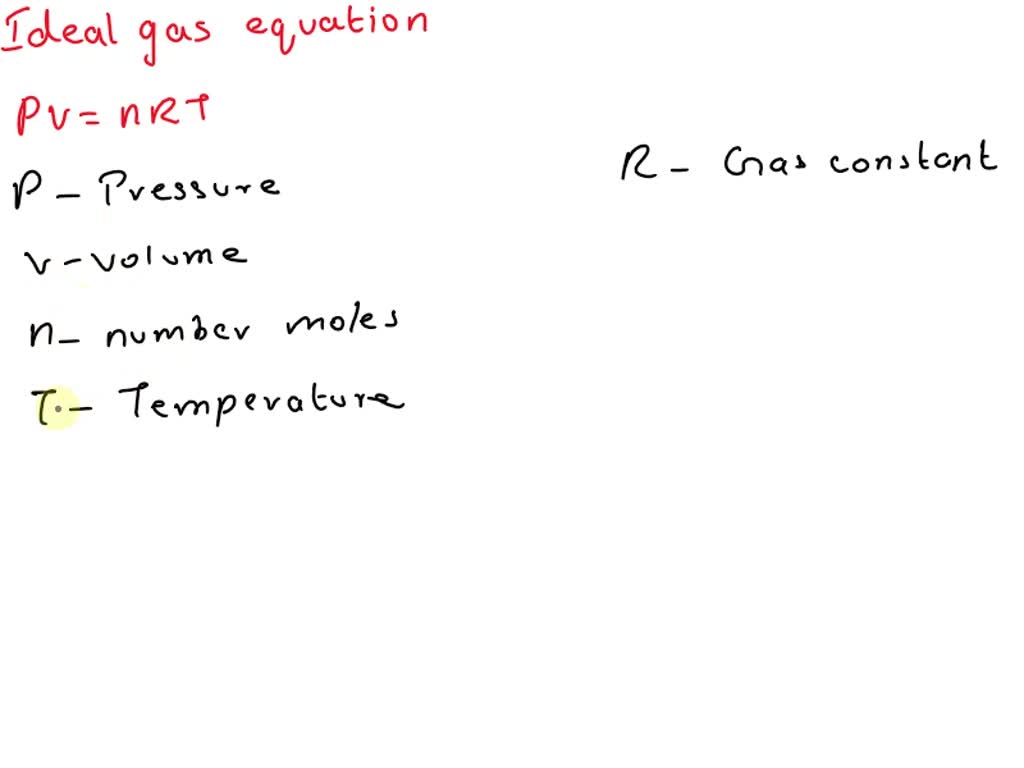 Ideal gas equation
PV = nRT
R - Gas constant
P - Pressure
V - volume
n - number moles
T - Temperature